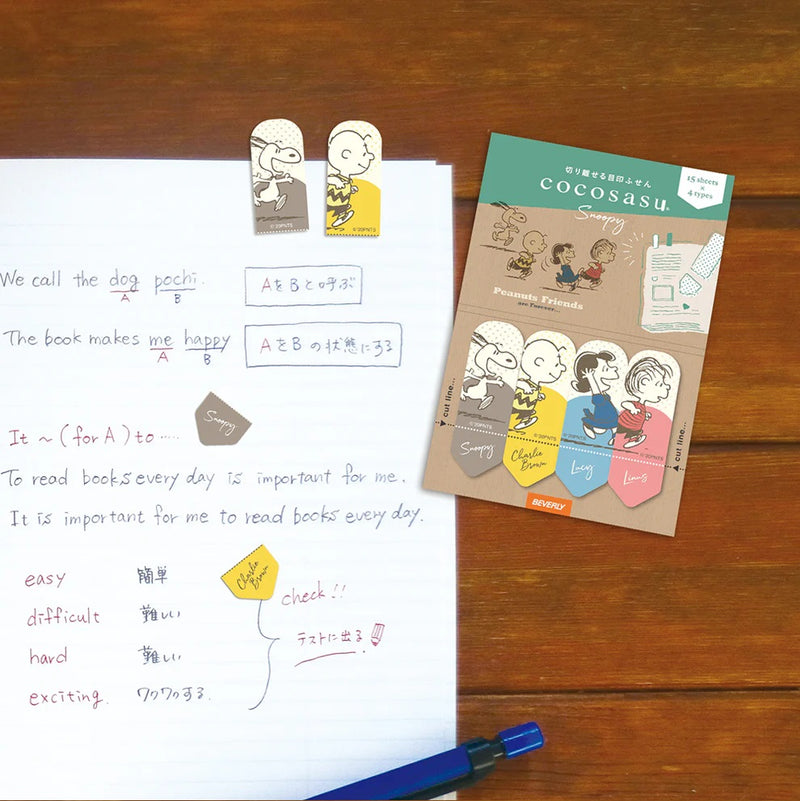 ©'20PNTS
©'20PNTS
We call the dog pochi.
A B
AをBと呼ぶ
The book makes me happy
A B
AをBの状態にする
Snoopy
It ~ (for A) to .....
To read books every day is important for me.
It is important for me to read books every day.
easy 簡単
difficult 難しい
hard 難しい
exciting. ワクワクする.
Charlie
Brown
check!!
テストに出る
切り離せる目印ふせん
cocosasu®
Snoopy
15 sheets
×
4 types
Peanuts Friends
are Forever...
©'20PNTS
©'20PNTS
©'20PNTS
©'20PNTS
cut line...
cut line...
Snoopy
Charlie
Brown
Lucy
Linus
BEVERLY